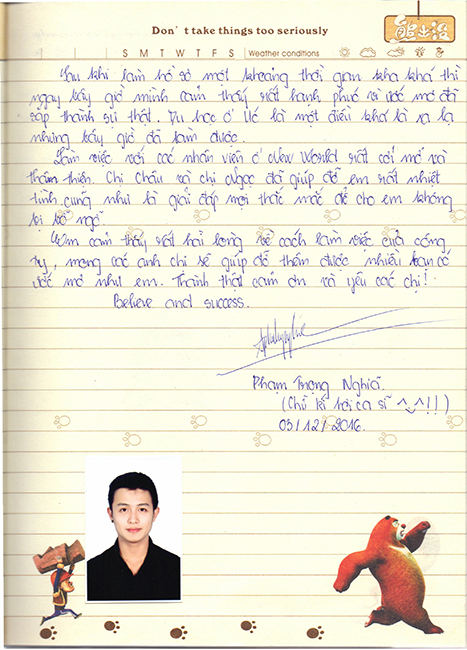 Don't take things too seriously
熊出没
S M T W T F S Weather conditions
Sau khi làm hồ sơ một khoảng thời gian kha khá thì
ngay bây giờ mình cảm thấy rất hạnh phúc vì ước mơ đã
sắp thành sự thật. Du học ở Úc là một điều khá là xa lạ
nhưng bây giờ đã làm được.
Làm việc với các nhân viên ở New World rất cởi mở và
thân thiện. Chị Châu và chị Ngọc đã giúp đỡ em rất nhiệt
tình cũng như là giải đáp mọi thắc mắc để cho em không
bị bỡ ngỡ.
Em cảm thấy rất hài lòng về cách làm việc của công
ty, mong các anh chị sẽ giúp đỡ thêm được nhiều bạn có
ước mơ như em. Thành thật cảm ơn và yêu các chị!
Believe and success.
Phạm Trọng Nghĩa.
(Chữ kí hơi ca sĩ ^_^!!)
03/12/2016.